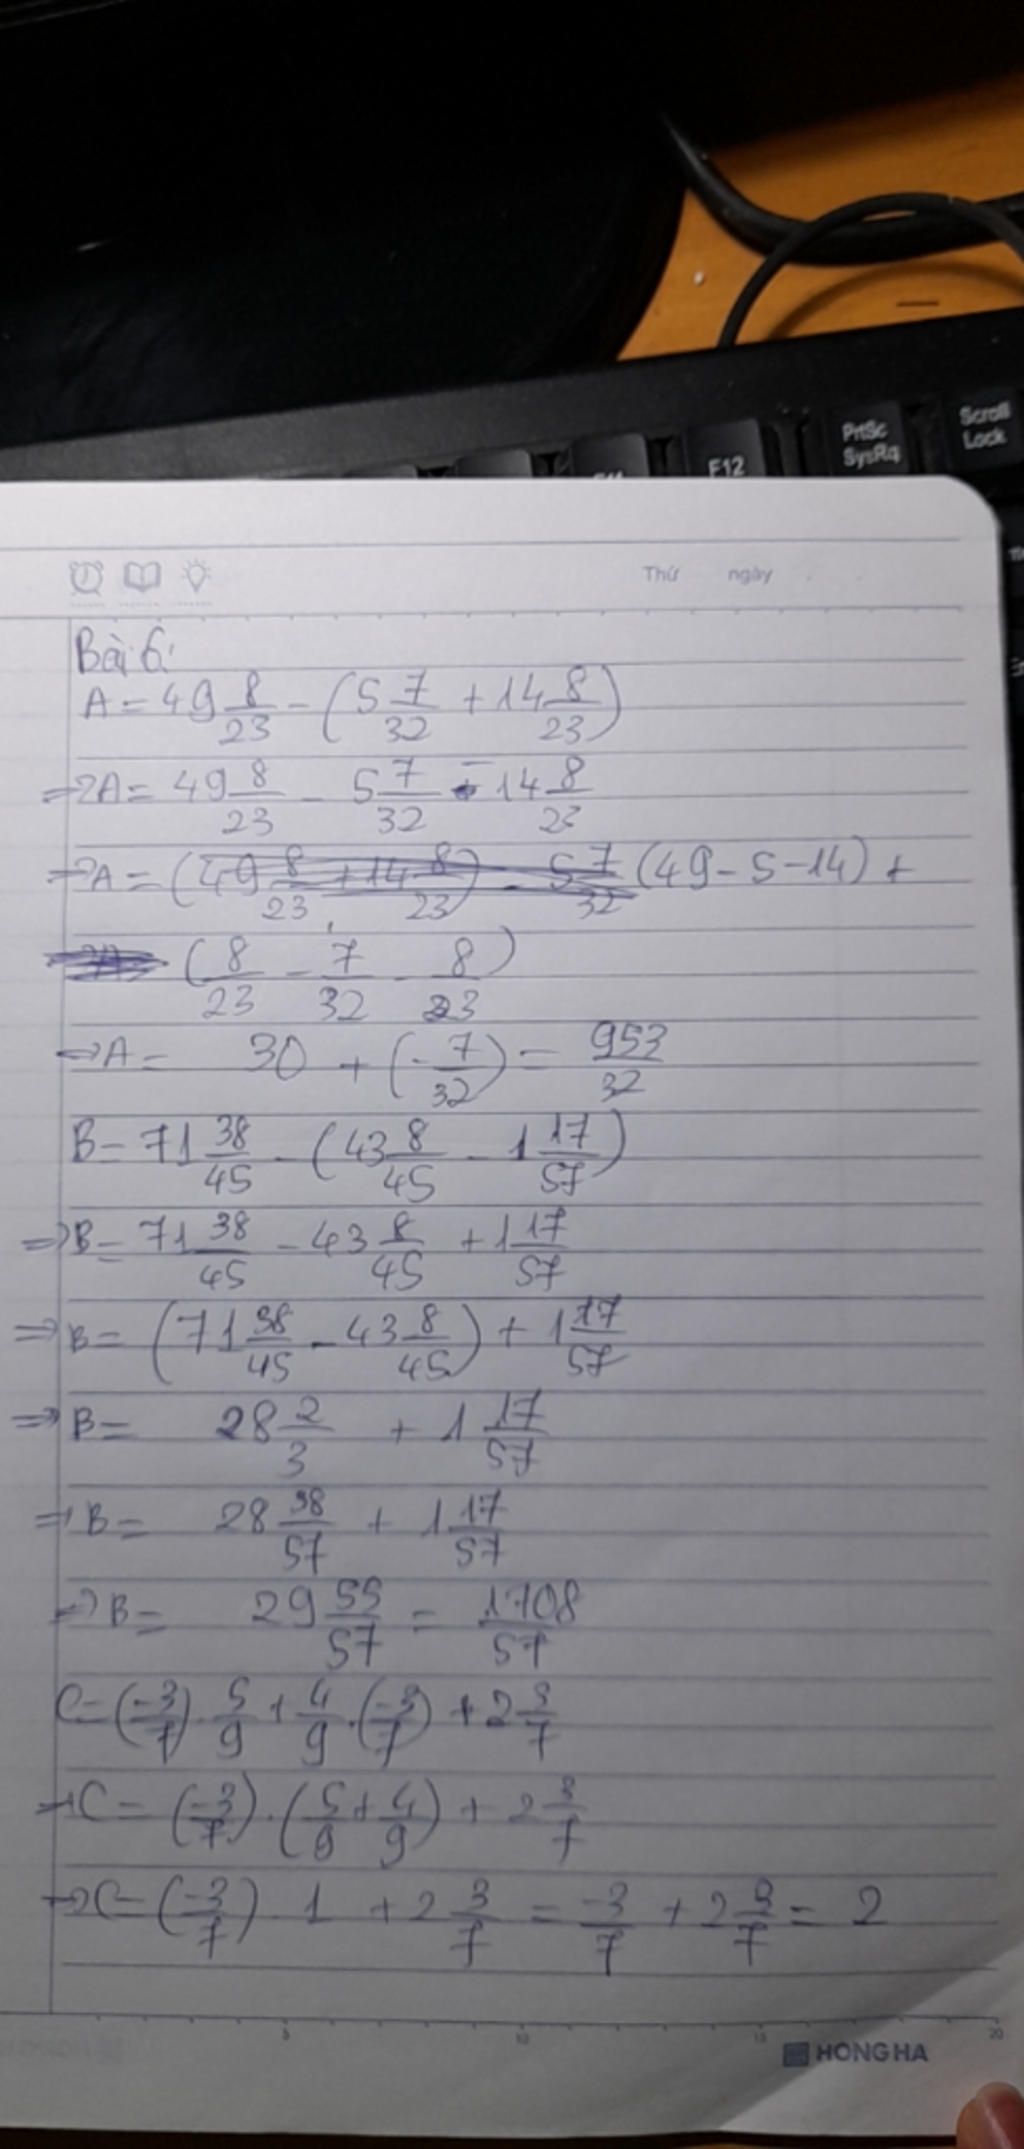 PrtSc
SysRq
Scroll
Lock
F12
Thứ ngày
Bài 6:
A = 49 8/23 - (5 7/32 + 14 8/23)
=> A = 49 8/23 - 5 7/32 - 14 8/23
=> A = (49 - 5 - 14) +
(8/23 - 7/32 - 8/23)
=> A = 30 + (-7/32) = 953/32
B = 71 38/45 - (43 8/45 - 1 17/57)
=> B = 71 38/45 - 43 8/45 + 1 17/57
=> B = (71 38/45 - 43 8/45) + 1 17/57
=> B = 28 2/3 + 1 17/57
=> B = 28 38/57 + 1 17/57
=> B = 29 55/57 = 1708/57
C = (-3/7) . 5/9 + 4/9 . (-3/7) + 2 3/7
=> C = (-3/7) . (5/9 + 4/9) + 2 3/7
=> C = (-3/7) . 1 + 2 3/7 = -3/7 + 2 3/7 = 2
5 10 15 20
HONG HA